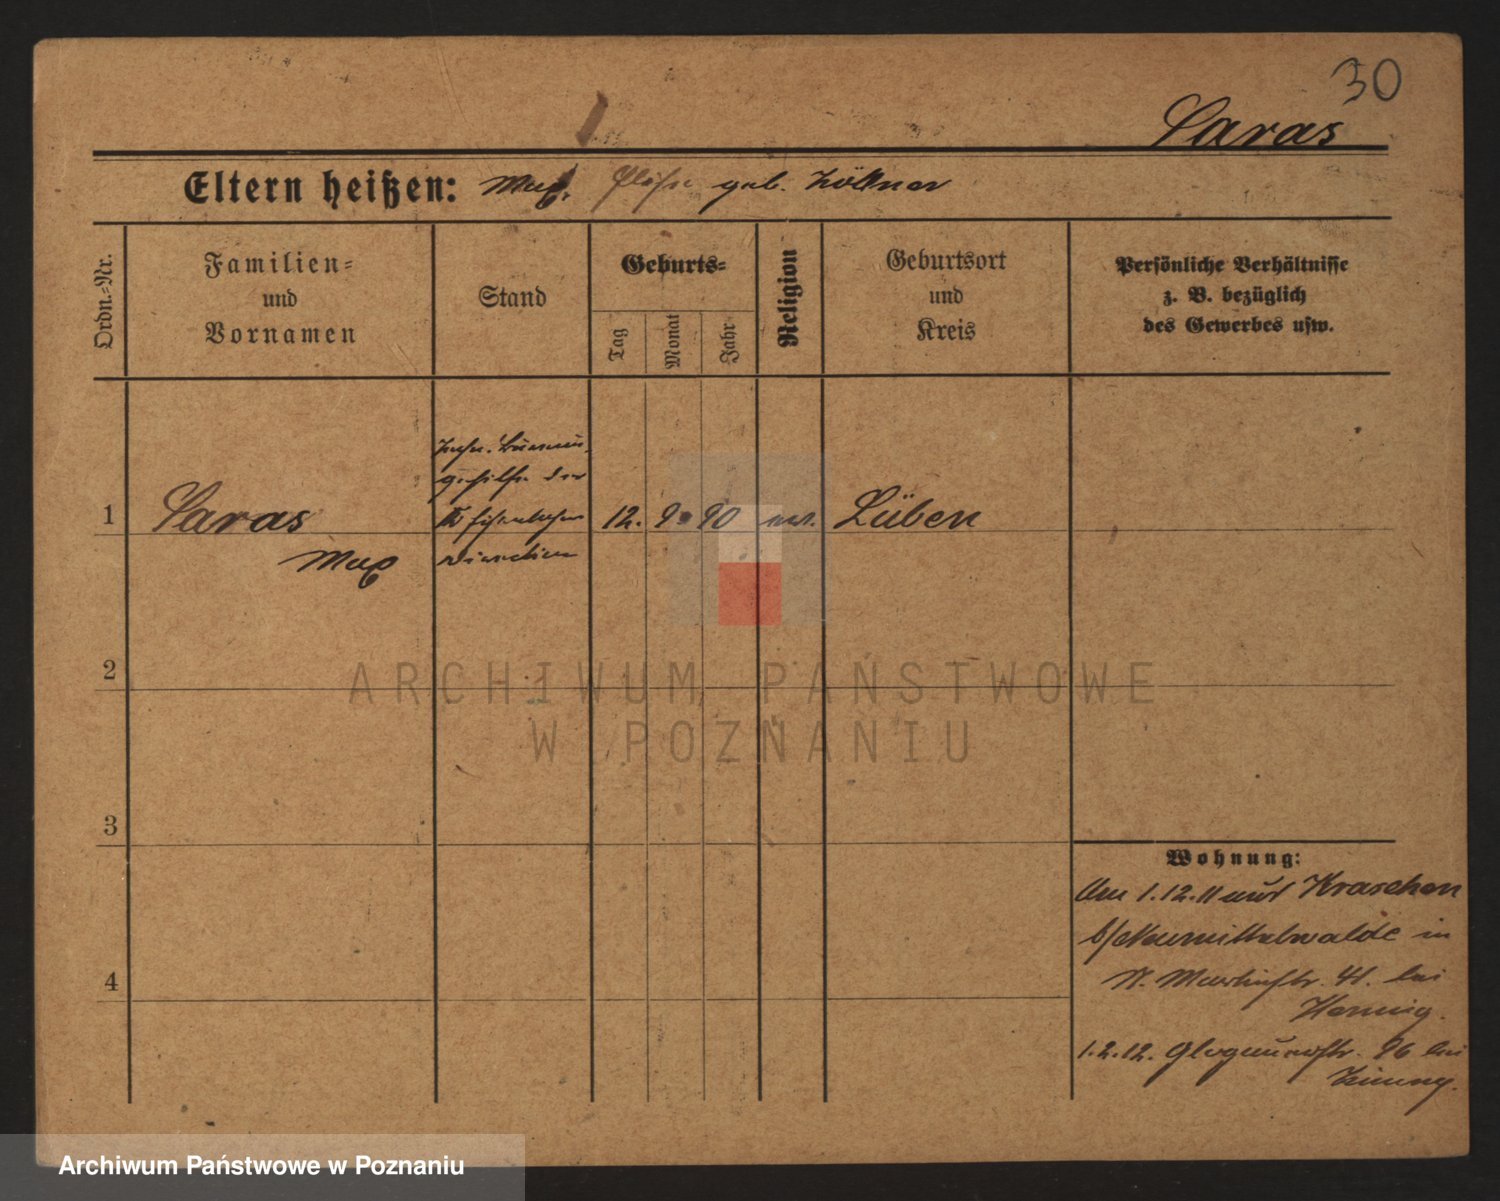 30
Saras
Eltern heißen: Max. geb. Zöllner
Ordn.=Nr.
Familien=
und
Vornamen
Stand
Geburts=
Tag
Monat
Jahr
Religion
Geburtsort
und
Kreis
Persönliche Verhältnisse
z. B. bezüglich
des Gewerbes usw.
1
Saras
Max
gehilfe der
Eisenbahn
direction
12. 9. 90
ev.
Lüben
2
3
4
Wohnung:
Am 1.12.11 aus Kraschen
b/Neumittelwalde in
P. Martinstr. 41. bei
Hennig.
1.2.12. Glogauerstr. 96 bei
ARCHIWUM PAŃSTWOWE
W POZNANIU
Archiwum Państwowe w Poznaniu